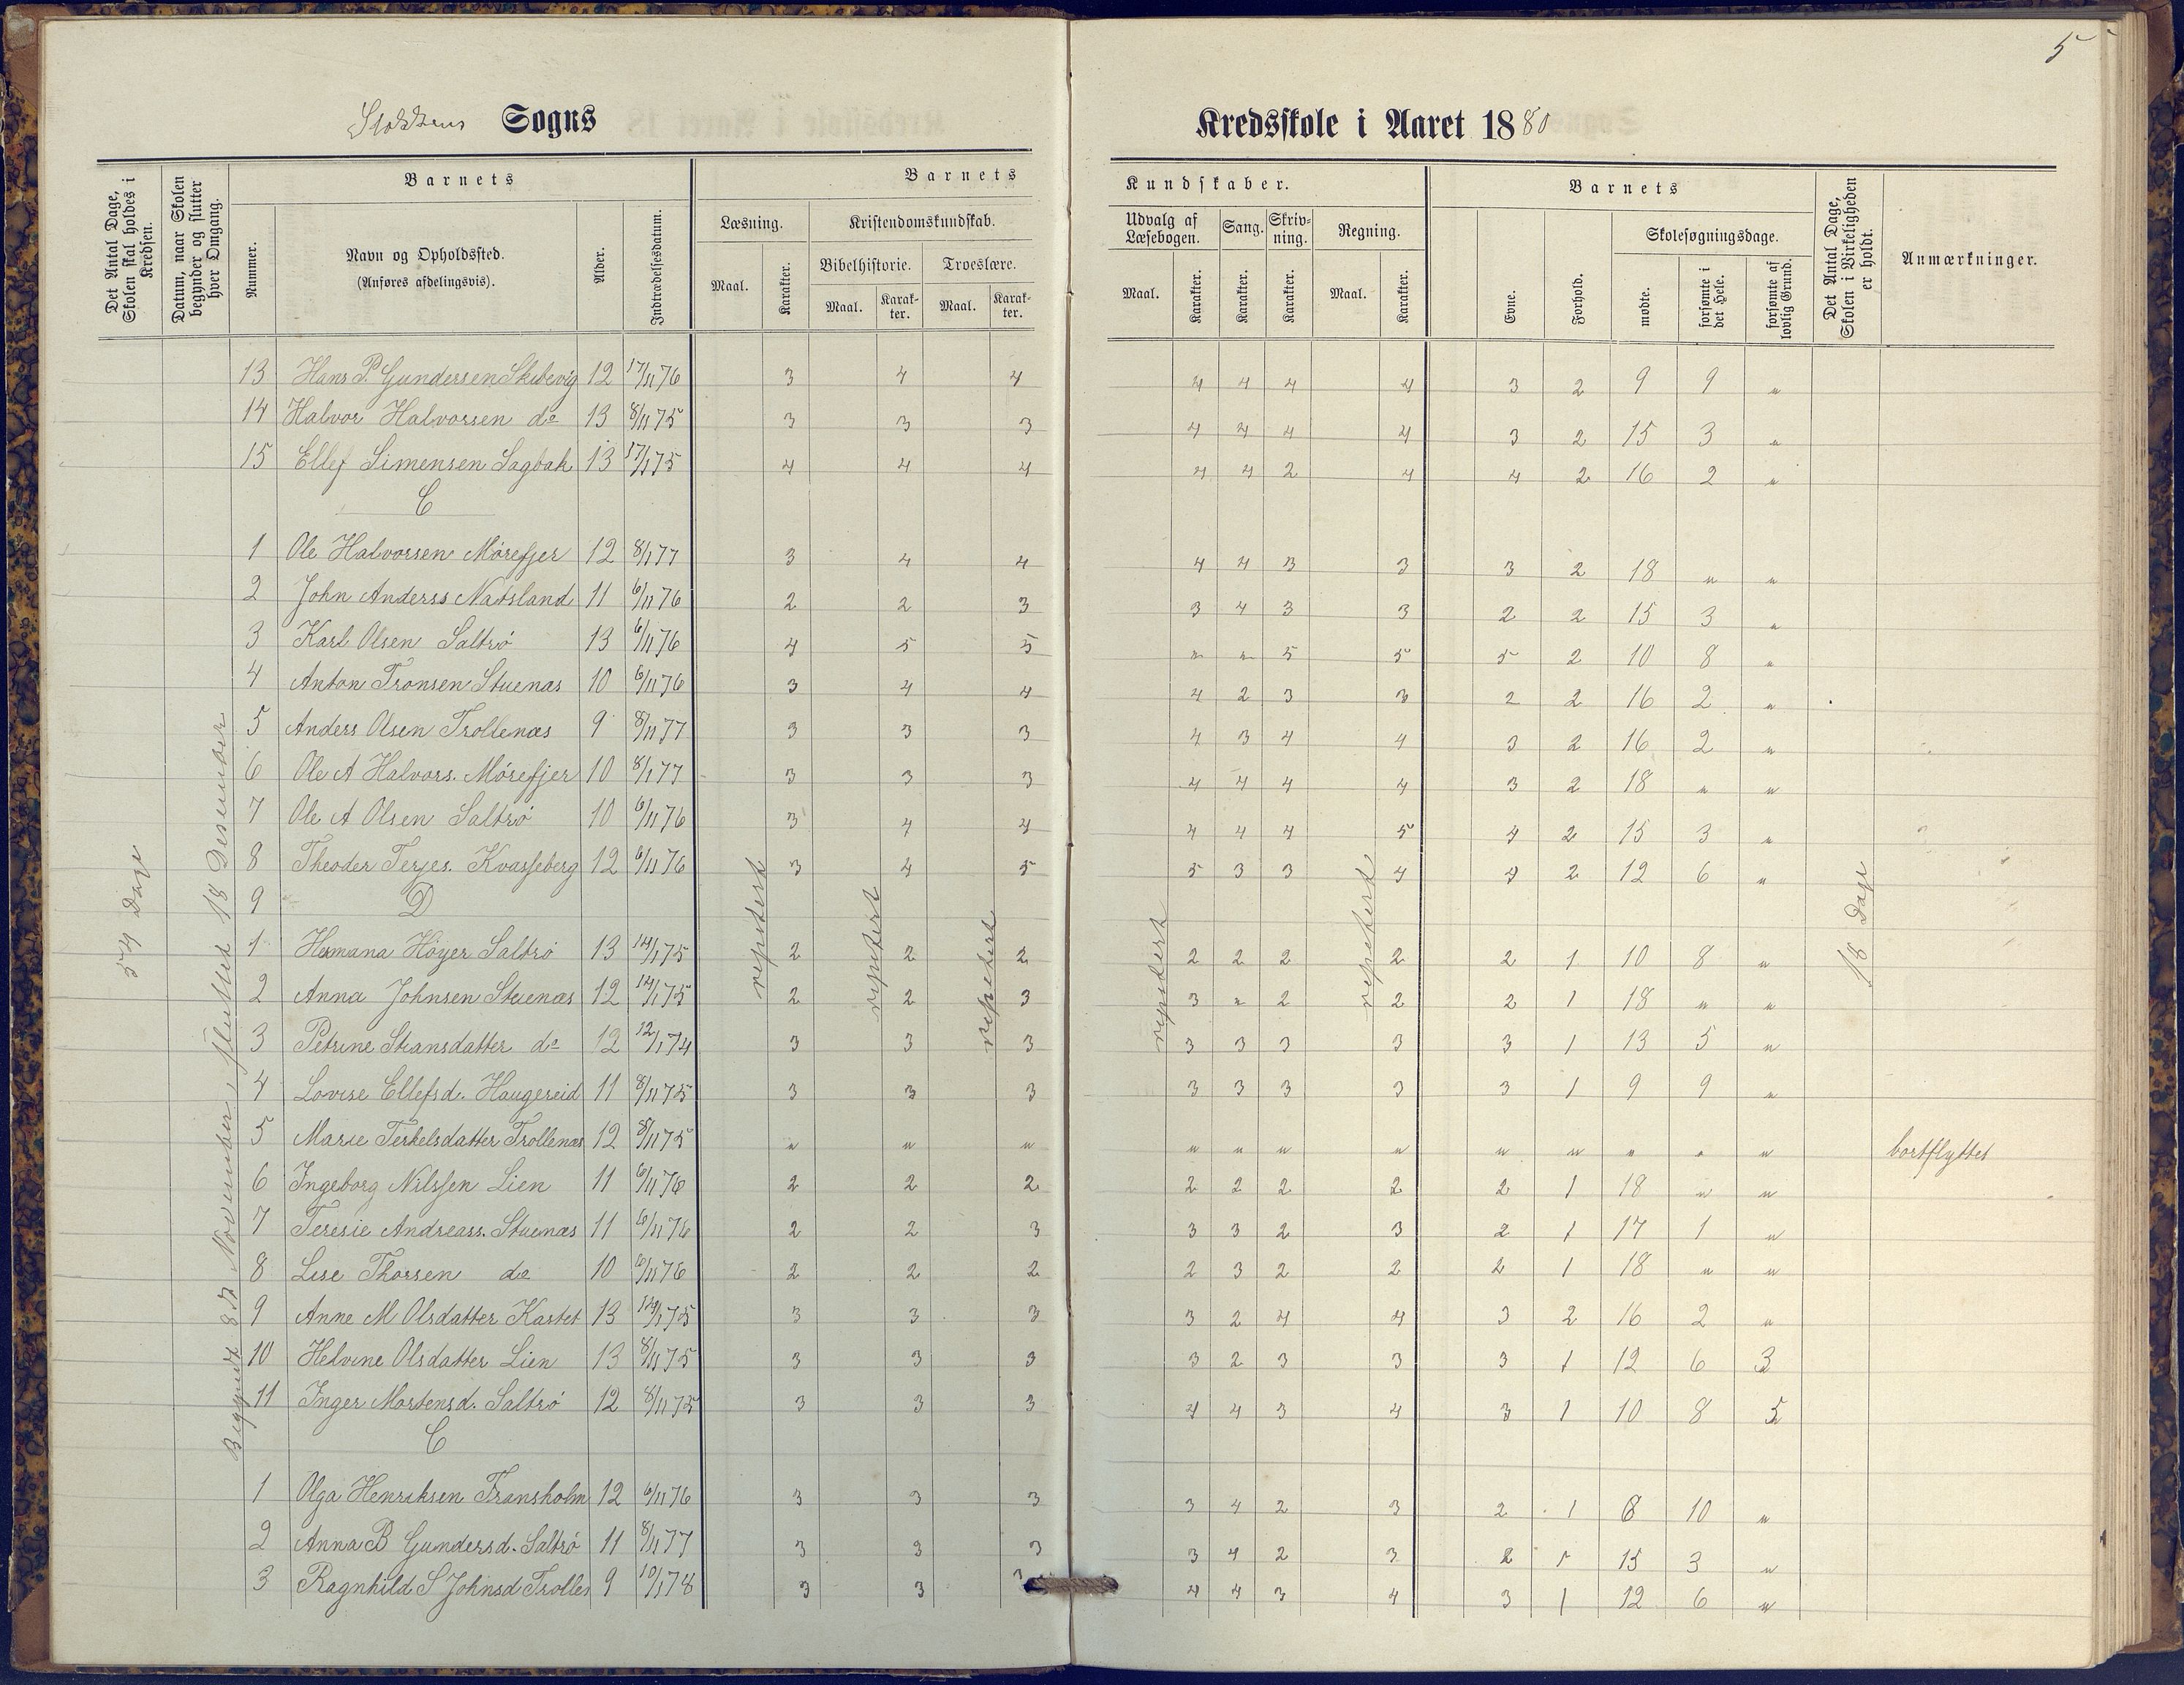 5
Stokkens Sogns Kredsskole i Aaret 1880
Det Antal Dage, Skolen skal holdes i Kredsen.
Datum, naar Skolen begynder og slutter hver Omgang.
Nummer.
Barnets
Navn og Opholdssted.
(Anføres afdelingsvis).
Alder.
Indtrædelsesdatum.
Barnets Kundskaber.
Læsning.
Maal.
Karakter.
Kristendomskundskab.
Bibelhistorie.
Maal.
Karakter.
Troeslære.
Maal.
Karakter.
Udvalg af Læsebogen.
Maal.
Karakter.
Sang.
Karakter.
Skrivning.
Karakter.
Regning.
Maal.
Karakter.
Barnets
Evne.
Forhold.
Skolesøgningsdage.
mødte.
forsømte i det Hele.
forsømte af lovlig Grund.
Det Antal Dage, Skolen i Virkeligheden er holdt.
Anmærkninger.
54 Dage
Begyndt 8de November, sluttet 18 Desember
repetert
repetert
repetert
repetert
repetert
18 Dage
13 Hans P. Gundersen Skibevig 12 17/11 76 3 4 4 4 4 4 4 3 2 9 9 "
14 Halvor Halvorsen do 13 8/11 75 3 3 3 4 4 4 4 3 2 15 3 "
15 Ellef Simensen Sagbak 13 17/1 75 4 4 4 4 4 2 4 4 2 16 2 "
C
1 Ole Halvorsen Mórefjer 12 8/1 77 3 4 4 4 4 3 3 3 2 18 " "
2 John Anderss Natsland 11 6/11 76 2 2 3 3 4 3 3 2 2 15 3 "
3 Karl Olsen Saltró 13 6/11 76 4 5 5 " " 5 5 5 2 10 8 "
4 Anton Tronsen Stuenæs 10 6/11 76 3 4 4 4 2 3 3 2 2 16 2 "
5 Anders Olsen Trollenæs 9 8/11 77 3 3 3 4 3 4 4 3 2 16 2 "
6 Ole A Halvors. Mórefjer 10 8/1 77 3 3 3 4 4 4 4 3 2 18 " "
7 Ole A Olsen Saltró 10 6/11 76 3 4 4 4 4 4 5 4 2 15 3 "
8 Theoder Terjes. Kvasseberg 12 6/11 76 3 4 5 5 3 3 4 4 2 12 6 "
9 D
1 Hemana Höyer Saltró 13 14/1 75 2 2 2 2 2 2 2 2 1 10 8 "
2 Anna Johnsen Stuenæs 12 14/1 75 2 2 3 3 " 2 2 2 1 18 " "
3 Petrine Stiansdatter do 12 12/1 74 3 3 3 3 3 3 3 3 1 13 5 "
4 Lovise Ellefsd. Haugereid 11 8/11 75 3 3 3 3 3 3 3 3 1 9 9 "
5 Marie Terkelsdatter Trollenæs 12 8/11 75 " " " " " " " " " " " " bortflyttet
6 Ingeborg Nilssen Lien 11 6/11 76 2 2 2 2 2 2 2 2 1 18 " "
7 Teresie Andreass. Stuenæs 11 6/11 76 2 2 3 3 3 2 3 2 1 17 1 "
8 Lise Thorsen do 10 6/11 76 2 2 2 2 3 2 2 2 1 18 " "
9 Anne M Olsdatter Kastet 13 14/1 75 3 3 3 3 2 4 4 3 2 16 2 "
10 Helvine Olsdatter Lien 13 8/11 75 3 3 3 3 2 3 3 3 1 12 6 3
11 Inger Mortensd. Saltró 12 8/11 75 3 3 3 4 4 3 4 3 1 10 8 5
C
1 Olga Henriksen Fransholm 12 6/11 76 3 3 3 3 4 2 3 2 1 8 10 "
2 Anna B Gundersd. Saltró 11 8/1 77 3 3 3 3 4 2 3 2 1 15 3 "
3 Ragnhild S Johnsd Trolles 9 10/1 78 3 3 3 4 4 3 4 3 1 12 6 "